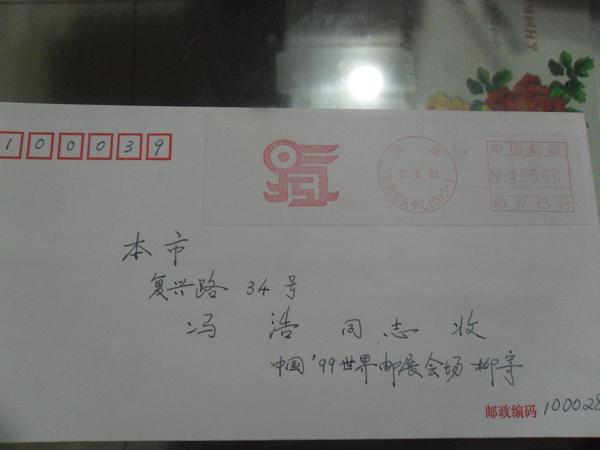 100039
中国邮政
邮资已付
本市
复兴路 34号
冯 浩 同志 收
中国'99世界邮展会场 柳宇
邮政编码 100028